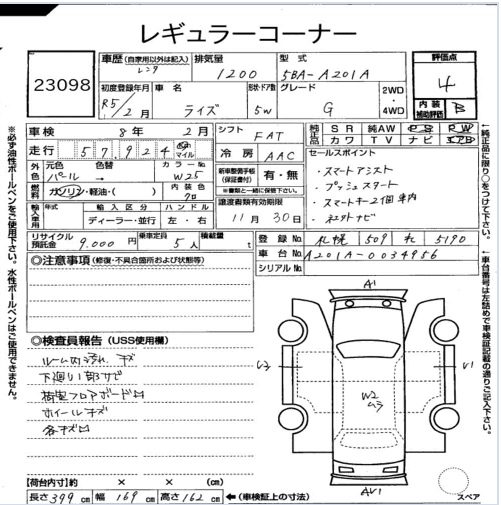 レギュラーコーナー
23098
車歴 (自家用以外は記入) レンタ
排気量 1200
型式 5BA-A201A
評価点 4
内装補助評価 B
初度登録年月 R5/2月
車名 ライズ
形状・ドア数 5W
グレード G
2WD・4WD
車検 8年 2月
走行 57,924 km マイル
シフト FAT
冷房 AAC
純正品 SR 純AW PS PW
社外品 カワ TV ナビ エアB
外色 元色 パール 色替 → カラーNo. W25
燃料 ガソリン・軽油・( )
内装色 クロ
新車整備手帳(保証書付) 有・無
※書類と一緒に保管下さい。
セールスポイント
・スマートアシスト
・プッシュスタート
・スマートキー2個 車内
輸入車用 年式 輸入区分 ディーラー・並行 ハンドル 左・右
譲渡書類有効期限 11月30日
リサイクル預託金 9,000円
乗車定員 5人
積載量 t
登録No. 札幌 509 れ 5190
車台No. A201A-0034956
シリアルNo.
◎注意事項 (修復・不具合箇所および状態等)
◎検査員報告 (USS使用欄)
ルーム内汚れ キズ
下廻り1部サビ
荷室フロアボード凹
ホイールキズ
各キズ凹
A1
V1
W2
ムラ
AV1
スペア
【荷台内寸】約 × × (cm)
長さ399cm 幅169cm 高さ162cm ←(車検証上の寸法)
※必ず油性ボールペンをご使用下さい。水性ボールペンはご使用できません。
←純正品に限り○をつけて下さい。
←車台番号は左詰めで車検証記載の通りご記入下さい。